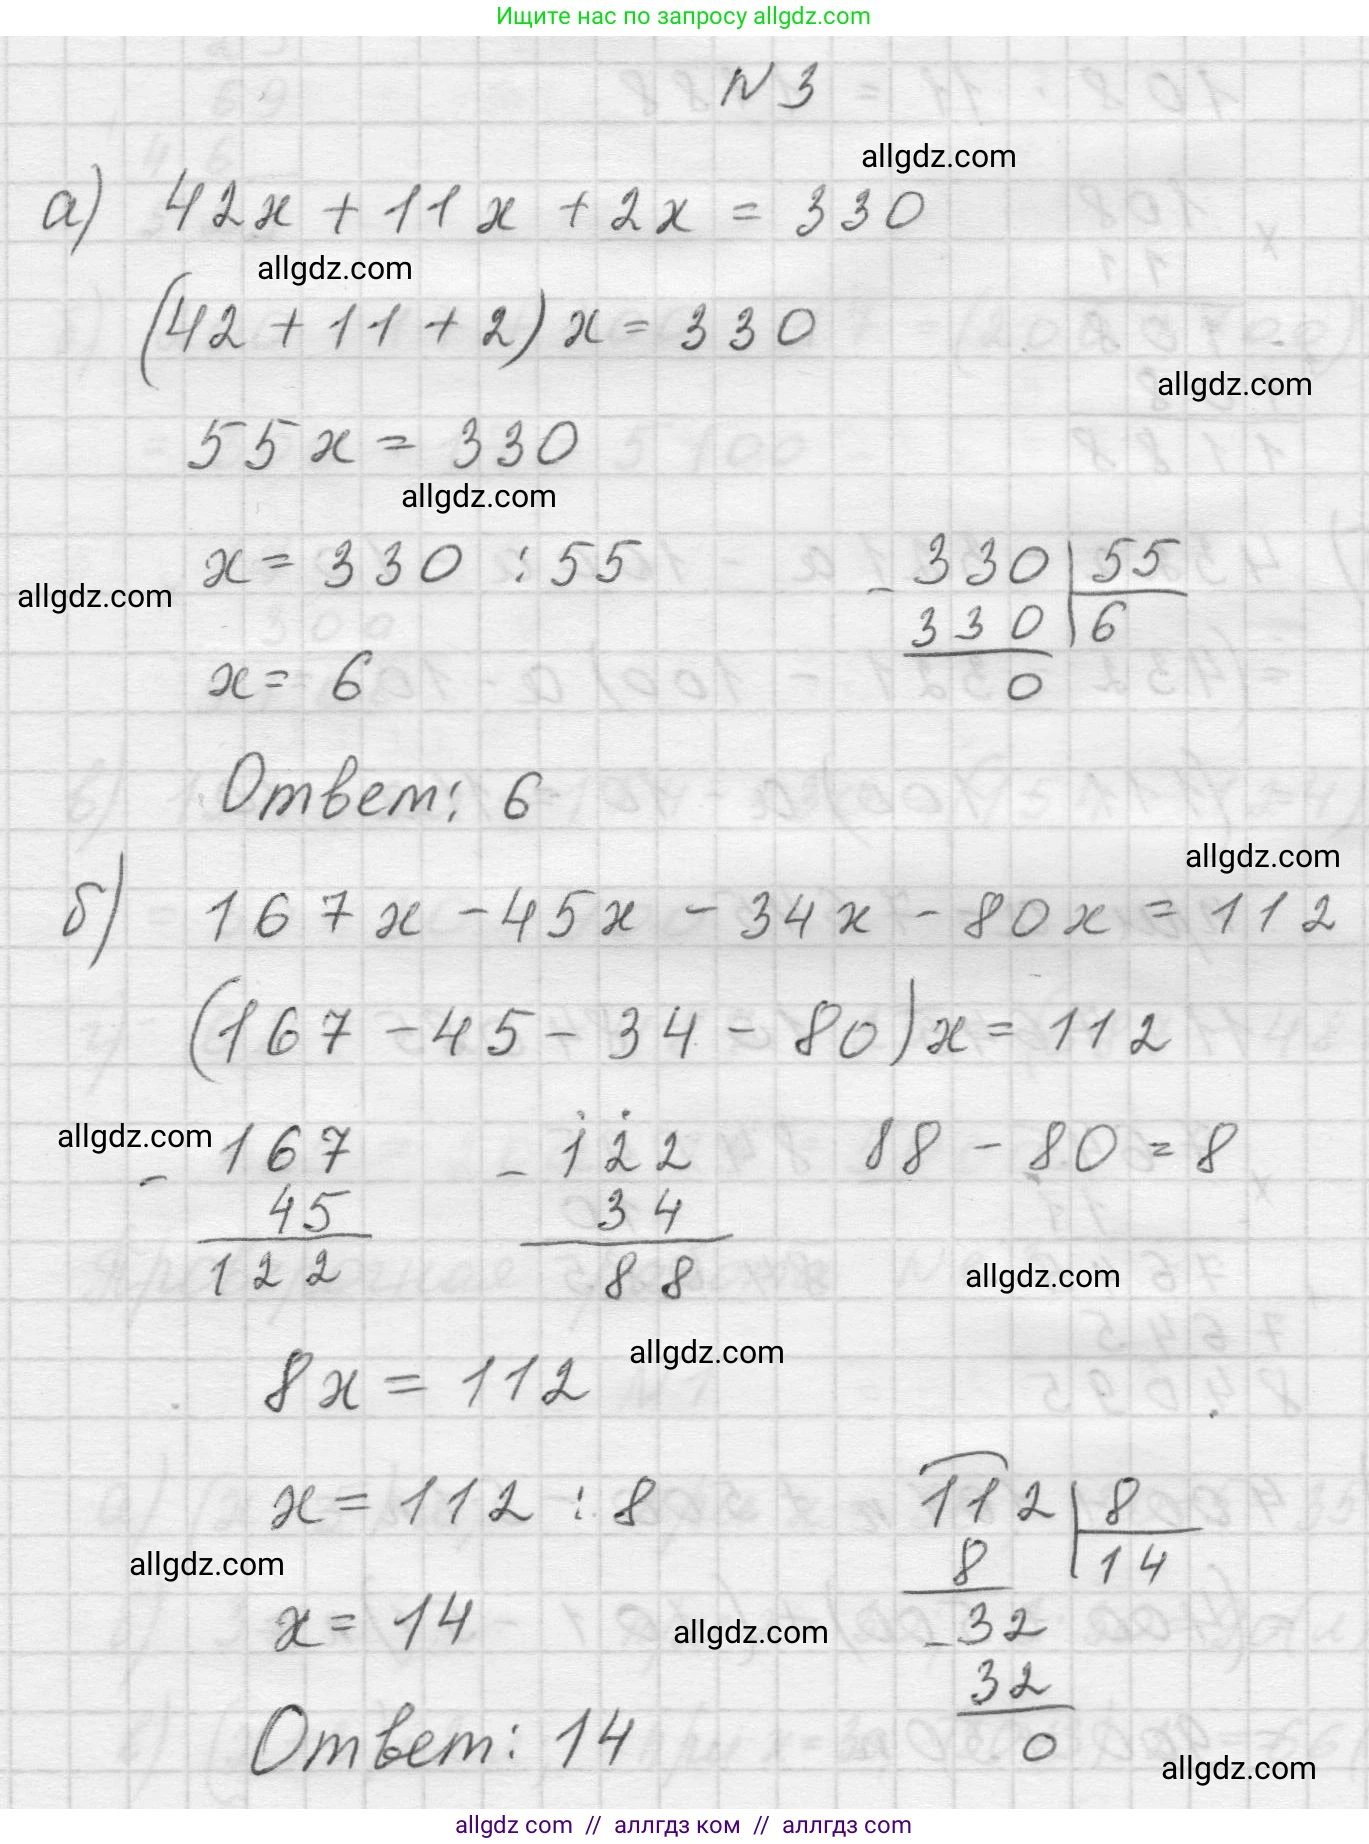 Ищите нас по запросу allgdz.com
N 3
allgdz.com
а) 42x + 11x + 2x = 330
allgdz.com
(42 + 11 + 2) x = 330
allgdz.com
55x = 330
allgdz.com
x = 330 : 55
- 330 | 55
allgdz.com
330 | 6
x = 6
0
Ответ: 6
allgdz.com
б) 167x - 45x - 34x - 80x = 112
(167 - 45 - 34 - 80) x = 112
allgdz.com
- 167
45
122
- 122
34
88
88 - 80 = 8
allgdz.com
allgdz.com
8x = 112
x = 112 : 8
112 | 8
8 | 14
- 32
32
0
allgdz.com
x = 14
allgdz.com
Ответ: 14
allgdz.com
allgdz com // аллгдз ком // аллгдз com